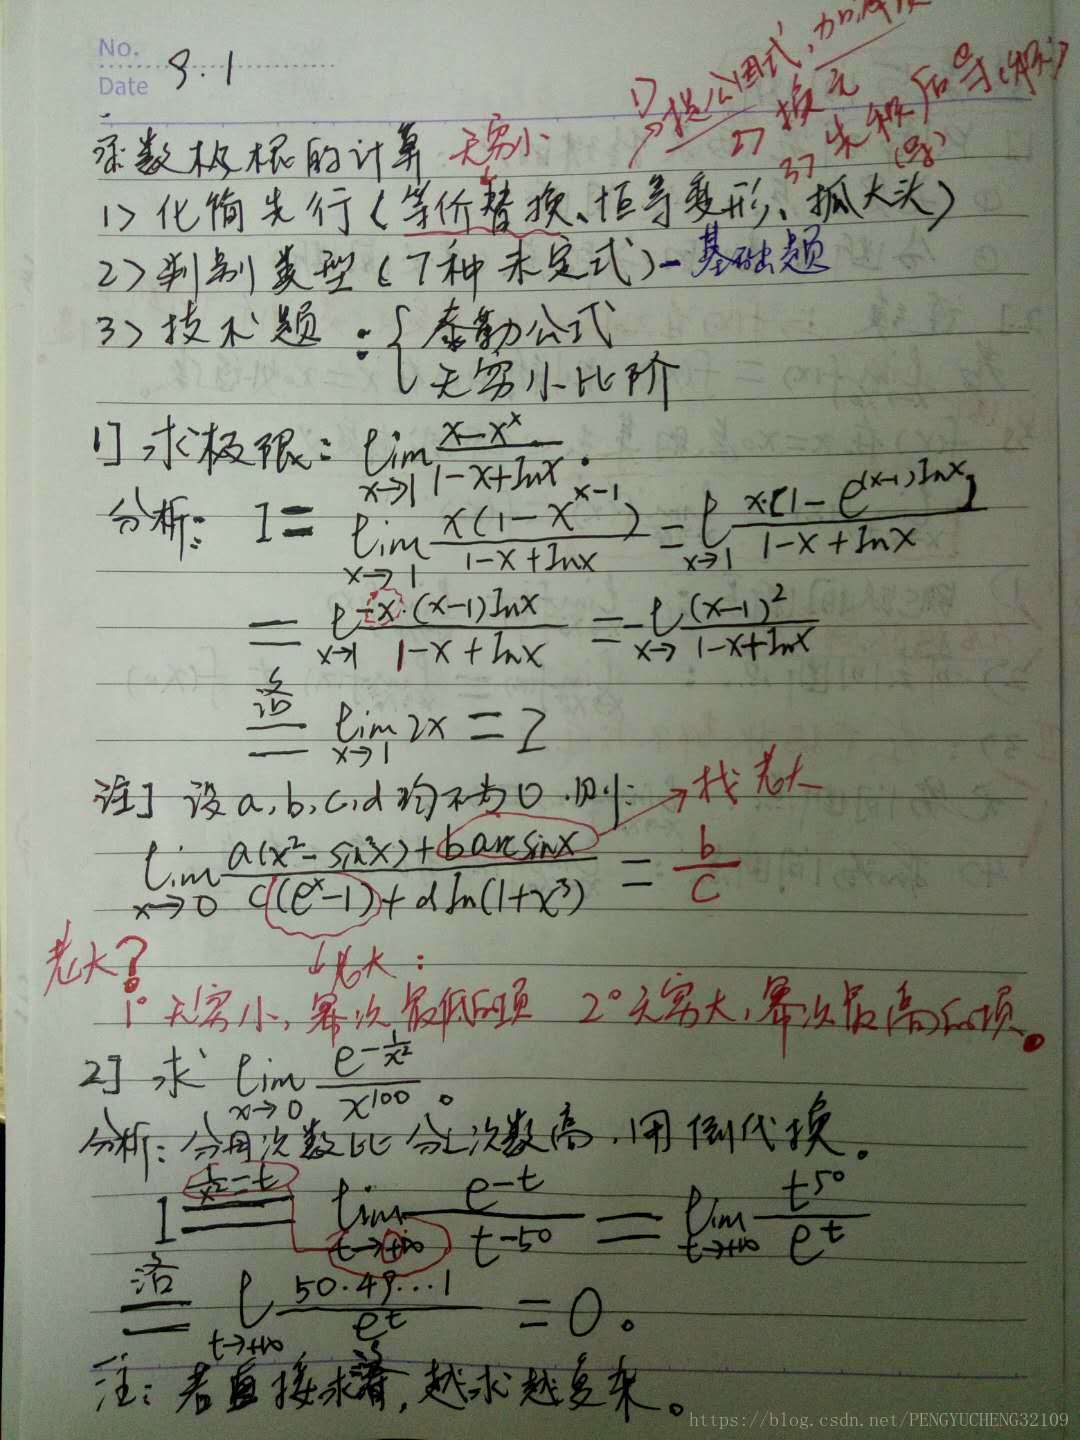 No.
Date 9.1
1) 提公因式,加减
2) 换元
3)
函数极限的计算 无穷小
1) 化简先行(等价替换、恒等变形、抓大头)
2) 判别类型(7种未定式)-基础题
3) 技术题:{泰勒公式
无穷小比阶
1] 求极限: lim x→1 (x-x^x)/(1-x+lnx).
分析: I = lim x→1 x(1-x^(x-1))/(1-x+lnx) = l x→1 x·[1-e^((x-1)lnx)]/(1-x+lnx)
= l x→1 -x·(x-1)lnx/(1-x+lnx) = -l x→ (x-1)²/(1-x+lnx)
洛= lim x→1 2x = 2
注] 设a,b,c,d均不为0,则: →找老大
lim x→0 (a(x²-sin²x)+b arcsinx)/(c(e^x-1)+d ln(1+x³)) = b/c
老大? ↓老大:
1° 无穷小,幂次最低的项 2° 无穷大,幂次最高的项。
2] 求 lim x→0 e^(-1/x²)/x^100。
分析: 分母次数比分子次数高,用倒代换。
I =(1/x²=t)= lim t→+∞ e^-t/t^-50 = lim t→+∞ t^50/e^t
洛= l t→+∞ 50·49...1/e^t = 0。
注: 若直接求洛,越求越复杂。
https://blog.csdn.net/PENGYUCHENG32109